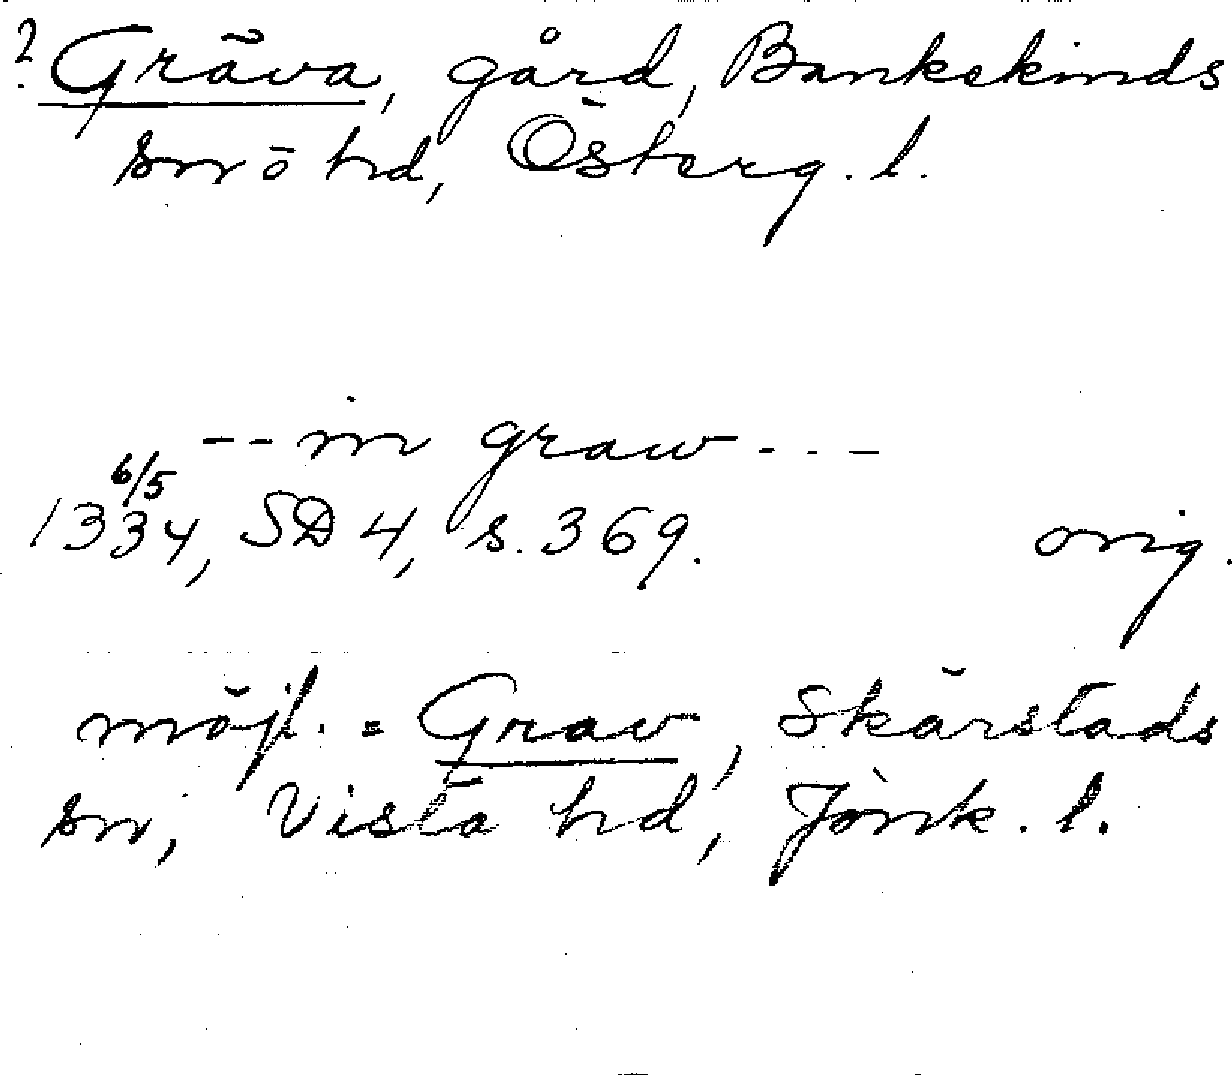 ? Gräva, gård, Bankekinds
sn o hd, Österg. l.
-- in graw ---
6/5
1334, SD 4, s. 369. orig.
möjl. = Grav, Skärstads
sn, Vista hd, Jönk. l.